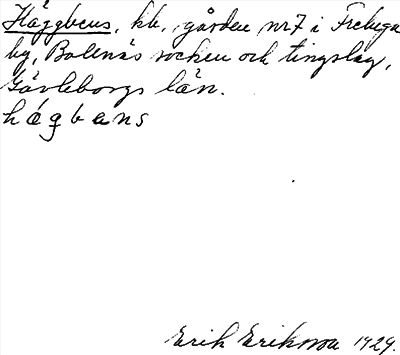 Häggbens, kb, gården nr7 i Freluga
by, Bollnäs socken och tingslag,
Gävleborgs län.
hágbens
Erik Eriksson 1929.